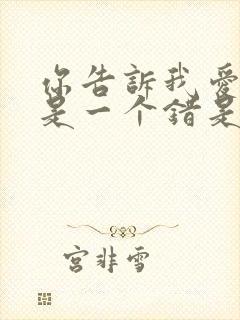 你告訴我愛
是一个錯是
宮非雪